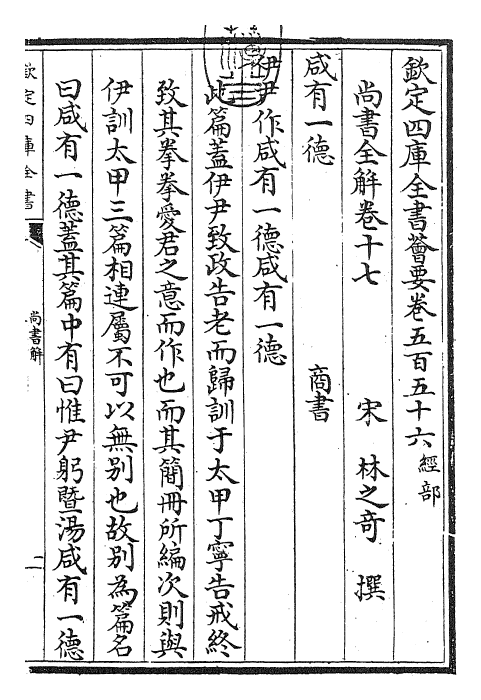 欽定四庫全書薈要卷五百五十六 經部
尚書全解卷十七 宋 林之奇 撰
咸有一德 商書
伊尹作咸有一德咸有一德
此篇蓋伊尹致政告老而歸訓于太甲丁寧告戒終
致其拳拳愛君之意而作也而其簡冊所編次則與
伊訓太甲三篇相連屬不可以無別也故別為篇名
曰咸有一德蓋其篇中有曰惟尹躬暨湯咸有一德
欽定四庫全書
尚書解
二